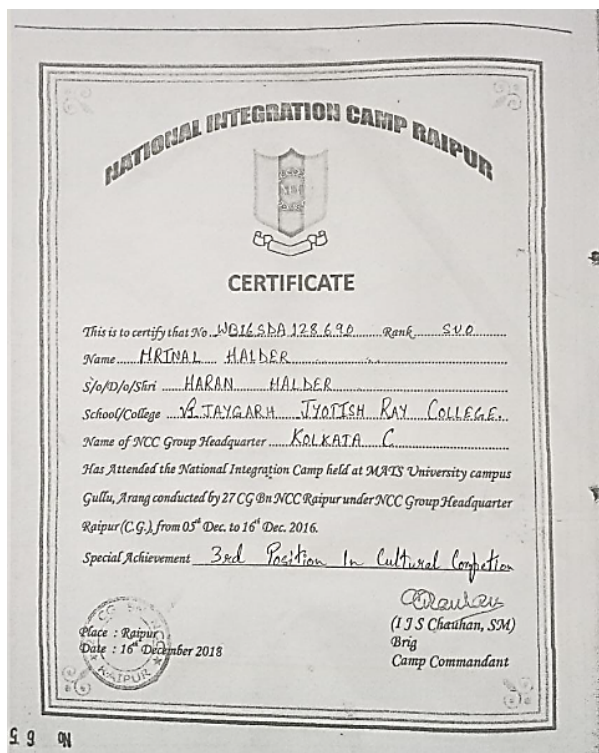 NATIONAL INTEGRATION CAMP RAIPUR
CERTIFICATE
This is to certify that No WB16SDA128690 Rank SUO
Name MRINAL HALDER
S/o/D/o/Shri HARAN HALDER
School/College VIJAYGARH JYOTISH RAY COLLEGE.
Name of NCC Group Headquarter KOLKATA C
Has Attended the National Integration Camp held at MATS University campus
Gullu, Arang conducted by 27 CG Bn NCC Raipur under NCC Group Headquarter
Raipur (C.G.), from 05th Dec. to 16th Dec. 2016.
Special Achievement 3rd Position In Cultural Competion
(I J S Chauhan, SM)
Place : Raipur
Brig
Date : 16th December 2018
Camp Commandant
RAIPUR